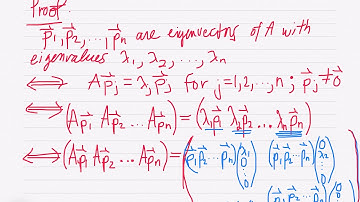 Proof.
p⃗₁, p⃗₂, ..., p⃗ₙ are eigenvectors of A with
eigenvalues λ₁, λ₂, ..., λₙ
⟺ A p⃗ⱼ = λⱼ p⃗ⱼ for j=1,2,...,n ; p⃗ⱼ ≠ 0⃗
⟺ (A p⃗₁ A p⃗₂ ... A p⃗ₙ) = (λ₁p⃗₁ λ₂p⃗₂ ... λₙp⃗ₙ)
⟺ (A p⃗₁ A p⃗₂ ... A p⃗ₙ) = ((p⃗₁ p⃗₂ ... p⃗ₙ)(λ₁ 0 ⋮ 0) (p⃗₁ p⃗₂ ... p⃗ₙ)(0 λ₂ ⋮ 0)
... (p⃗₁ p⃗₂ ... p⃗ₙ)(0 0